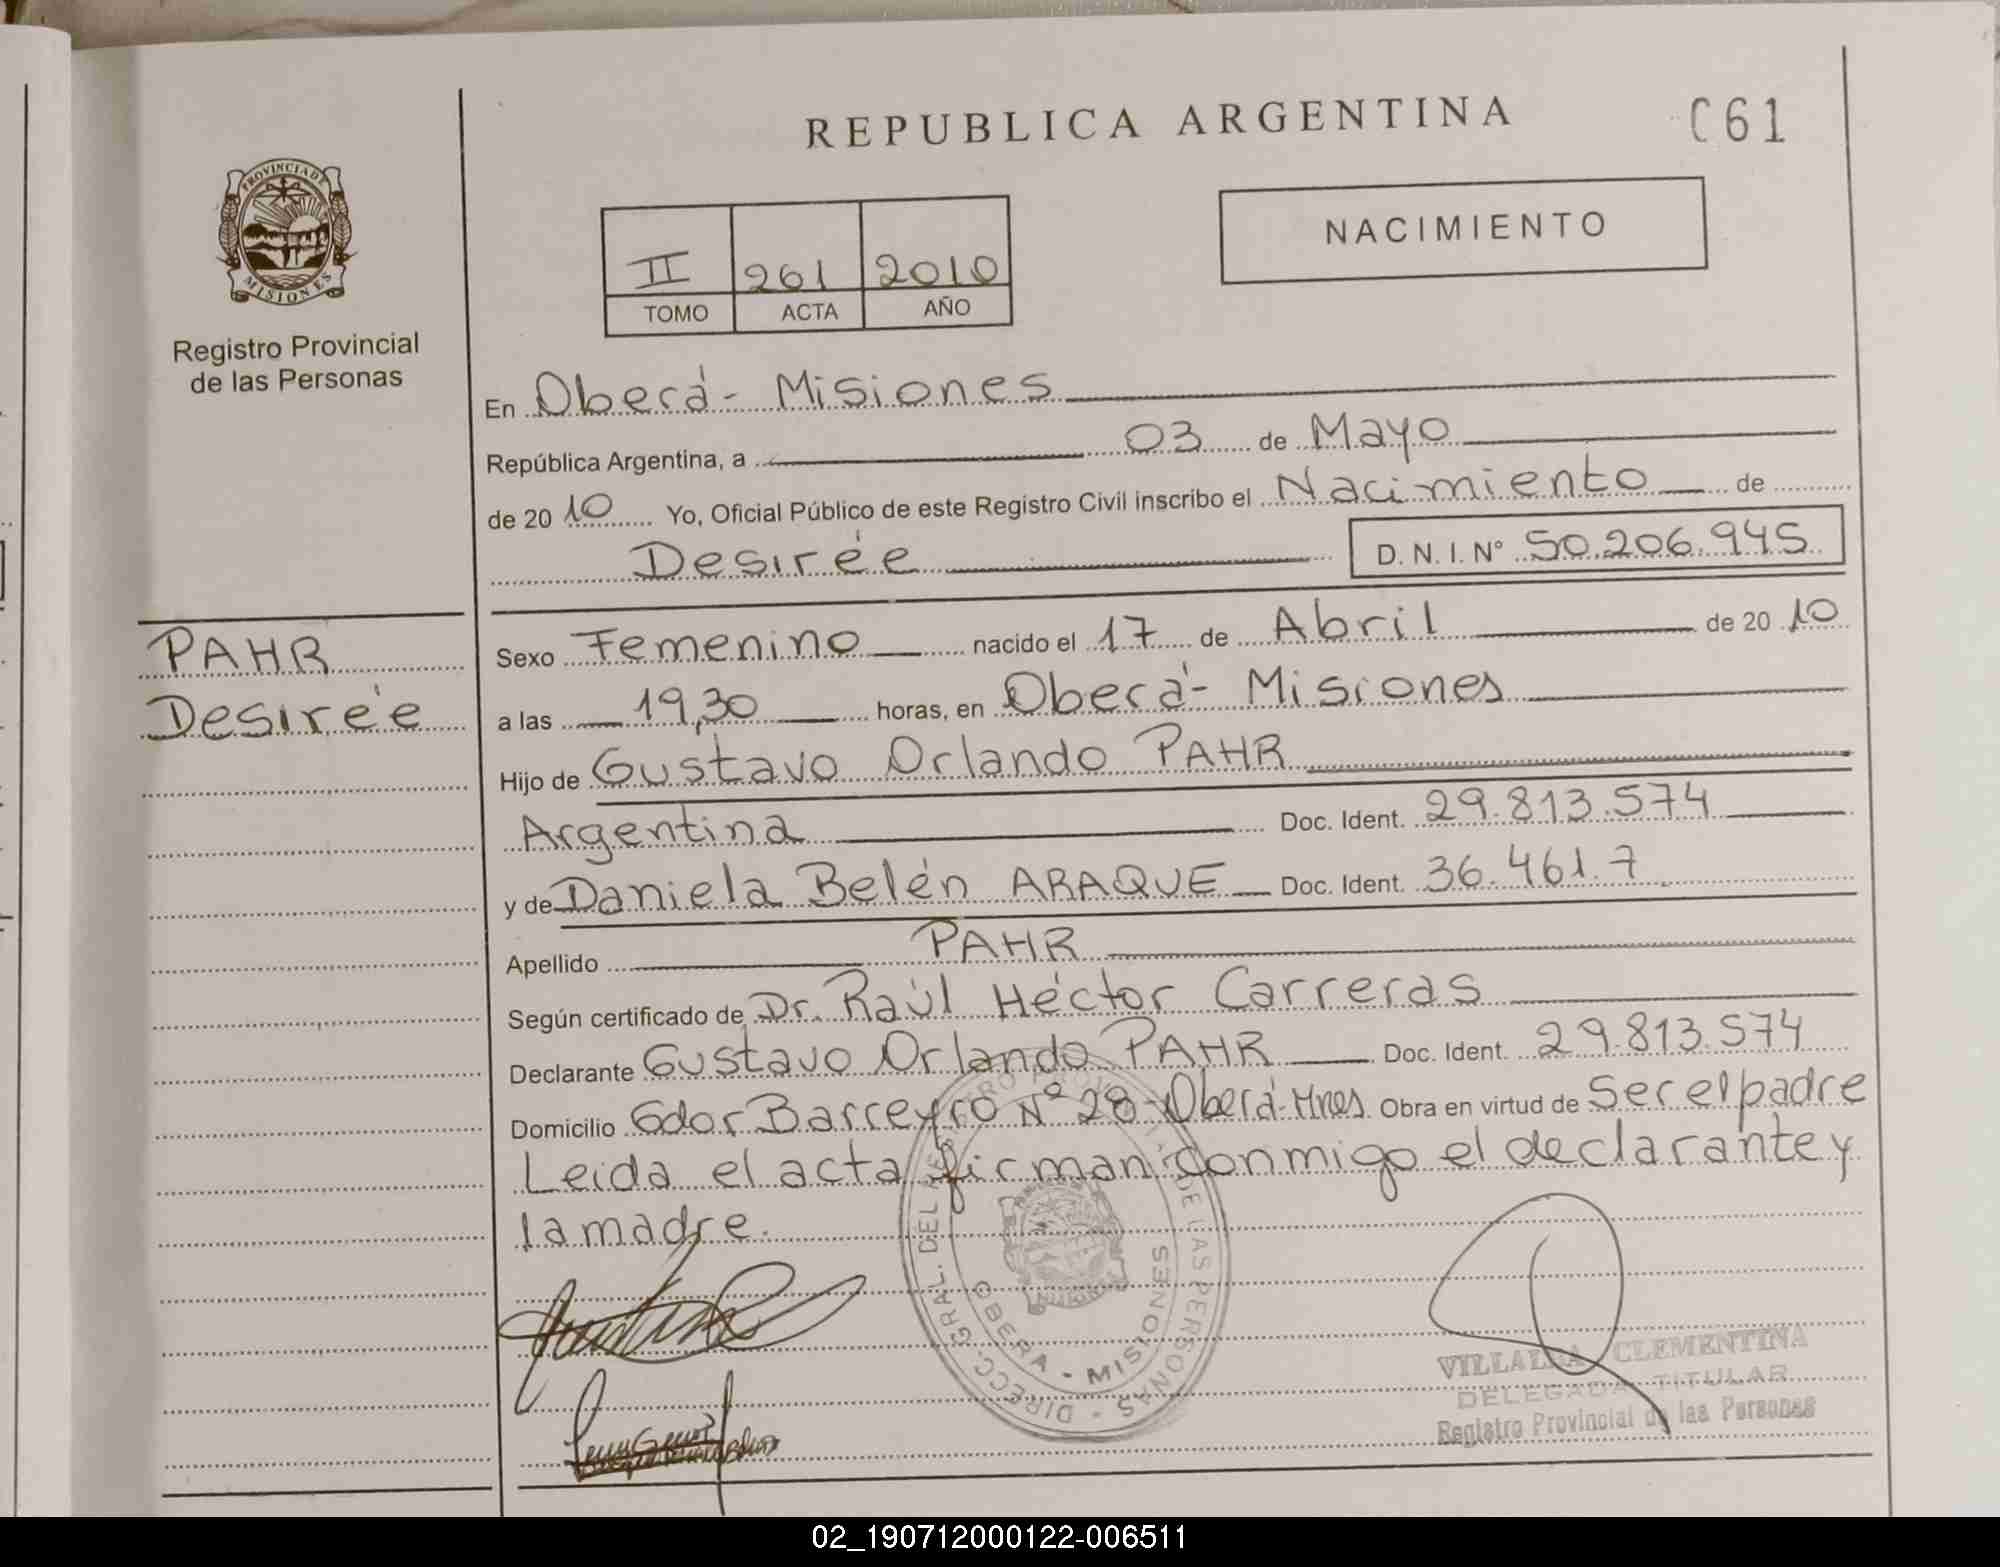 REPUBLICA ARGENTINA
C61
PROVINCIA DE
MISIONES
Registro Provincial
de las Personas
II 261 2010
TOMO ACTA AÑO
NACIMIENTO
En Oberá - Misiones
República Argentina, a 03 de Mayo
de 20 10 Yo, Oficial Público de este Registro Civil inscribo el Nacimiento de
Desirée D.N.I. Nº 50.206.945
PAHR
Desirée
Sexo Femenino nacido el 17 de Abril de 20 10
a las 19,30 horas, en Oberá - Misiones
Hijo de Gustavo Orlando PAHR
Argentina Doc. Ident. 29.813.574
y de Daniela Belén ARAQUE Doc. Ident. 36.461.7
Apellido PAHR
Según certificado de Dr. Raúl Héctor Carreras
Declarante Gustavo Orlando PAHR Doc. Ident. 29.813.574
Domicilio Gdor Barreyro Nº 28 - Oberá - Mnes Obra en virtud de Ser el padre
Leida el acta firman conmigo el declarante y
la madre.
DIRECC. GRAL. DEL REGISTRO PROVINCIAL DE LAS PERSONAS -
OBERA - MISIONES
VILLALBA CLEMENTINA
DELEGADA TITULAR
Registro Provincial de las Personas
02_190712000122-006511